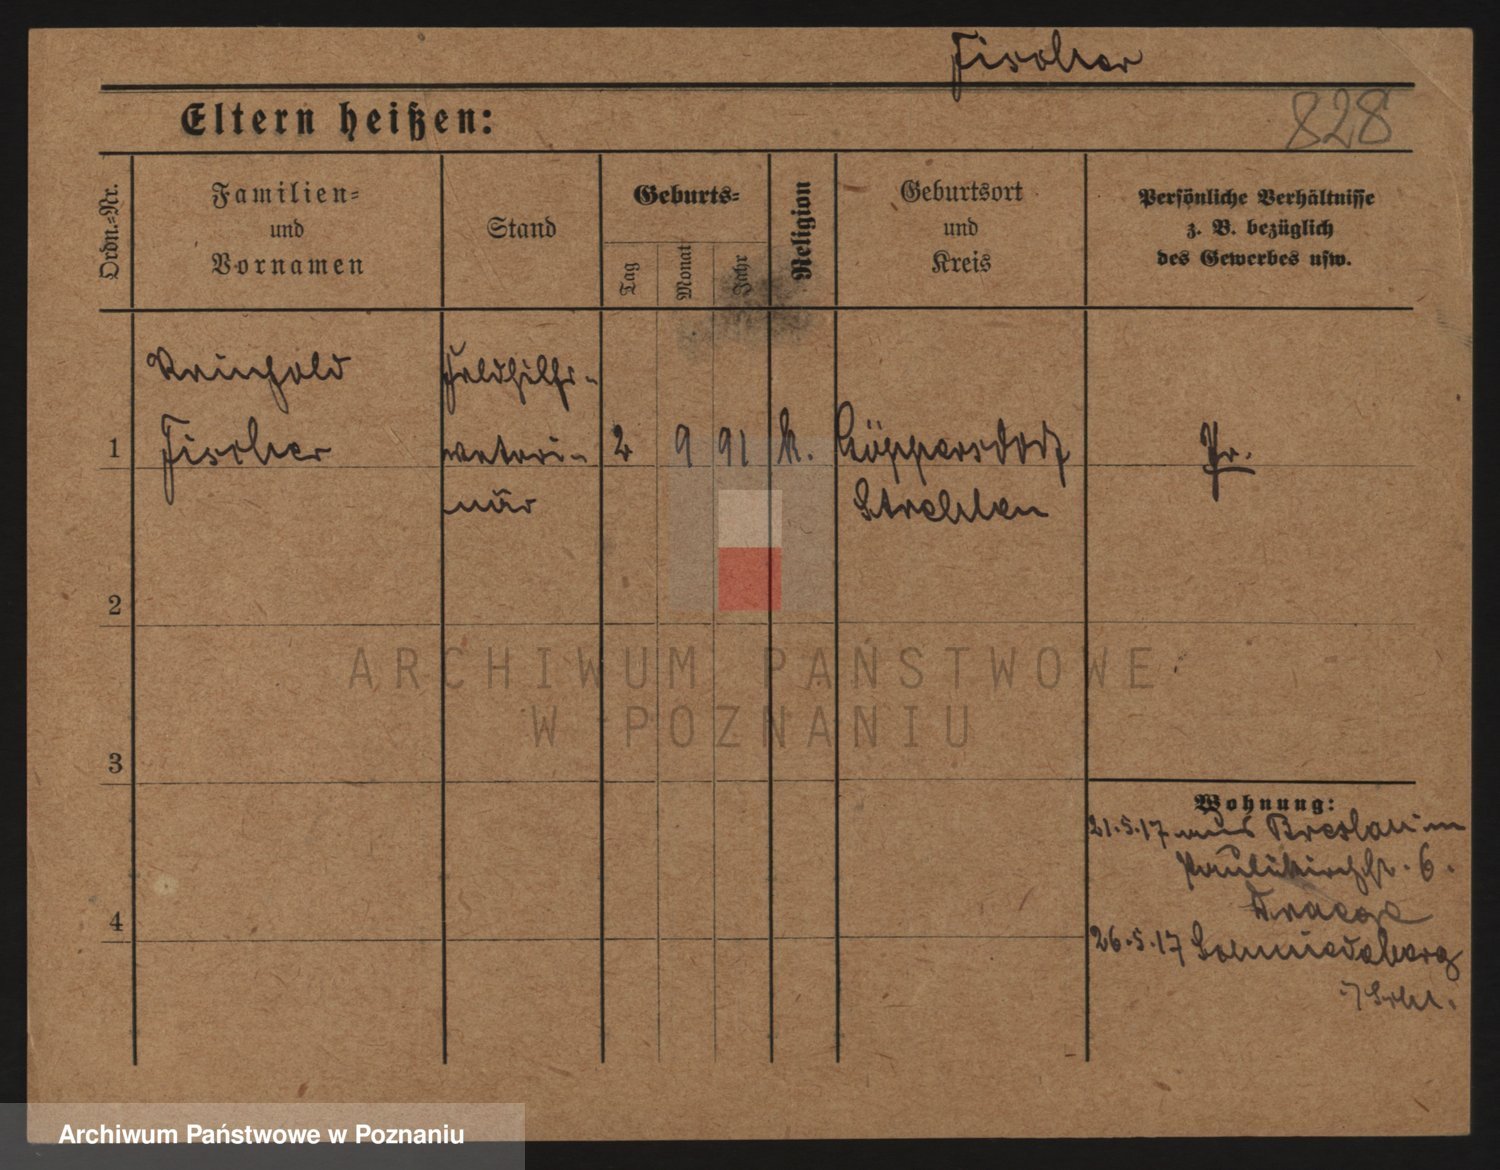 Fischer
828
Eltern heißen:
Ordn.-Nr.
Familien-
und
Vornamen
Stand
Geburts-
Tag
Monat
Jahr
Religion
Geburtsort
und
Kreis
Persönliche Verhältnisse
z. B. bezüglich
des Gewerbes usw.
Reinhold
Fischer
Feldhilfs-
veteri-
när
1
2
9
91
k.
Göppersdorf
Strehlen
Pr.
2
3
4
Wohnung:
21.5.17 aus Breslau in
Paulikirchstr. 6.
26.5.17 Schmiedeberg
i/Schl.
ARCHIWUM PAŃSTWOWE
W POZNANIU
Archiwum Państwowe w Poznaniu